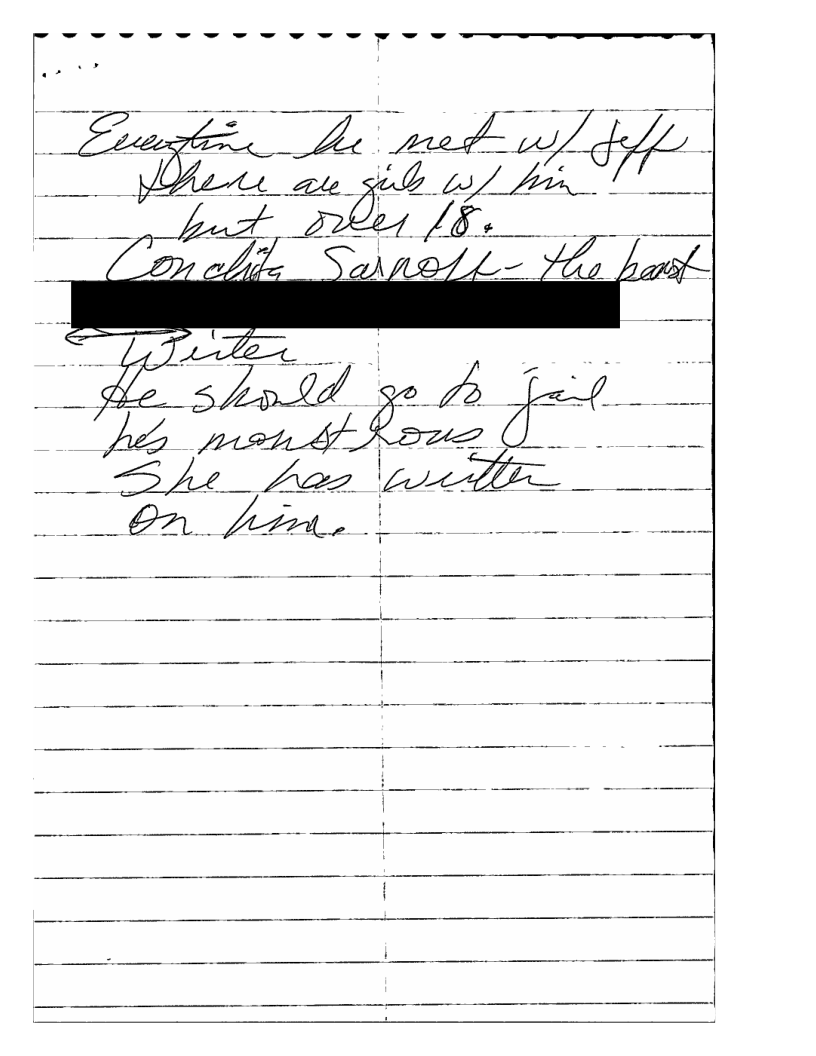 Everytime he met w/ Jeff
there are girls w/ him
but over 18.
Conchita Sarnoff - the beast
Writer
He should go to jail
he's monstrous
She has written
on him.